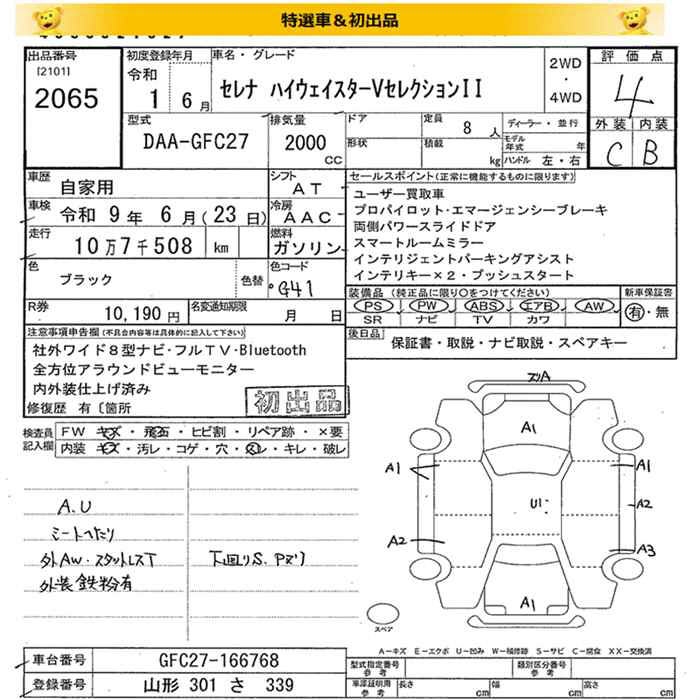 特選車＆初出品
出品番号
[2101]
2065
初度登録年月
令和
1 6月
車名・グレード
セレナ ハイウェイスターVセレクションII
2WD
・
4WD
評価点
4
外装 内装
C B
型式
DAA-GFC27
排気量
2000
CC
ドア
形状
定員
8 人
積載
kg
ディーラー・並行
モデル年式 年
ハンドル 左・右
車歴
自家用
シフト
AT
車検
令和 9年 6月(23日)
冷房
AAC
走行
10万7千508 km
燃料
ガソリン
色
ブラック
色替
色コード
G41
R券
10,190円
名変通知期限
月 日
セールスポイント(正常に機能するものに限ります)
ユーザー買取車
プロパイロット・エマージェンシーブレーキ
両側パワースライドドア
スマートルームミラー
インテリジェントパーキングアシスト
インテリキー×2・プッシュスタート
装備品 (純正品に限り○をつけてください)
PS PW ABS エアB AW
SR ナビ TV カワ
新車保証書
有・無
後日品
保証書・取説・ナビ取説・スペアキー
注意事項申告欄(不具合内容等は具体的に記入して下さい)
社外ワイド8型ナビ・フルTV・Bluetooth
全方位アラウンドビューモニター
内外装仕上げ済み
修復歴 有〔箇所
初出品
検査員
記入欄
FW キズ・飛石・ヒビ割・リペア跡・×要
内装 キズ・汚レ・コゲ・穴・スレ・キレ・破レ
A.U
シートヘたり
外AW・スタットレスT
外装 鉄粉有
下回りS、Pズリ
ズリA
A1
A1
A1
U1
A2
A2
A3
A1
スペア
A－キズ E－エクボ U－凹み W－補修跡 S－サビ C－腐食 XX－交換済
車台番号
GFC27-166768
登録番号
山形 301 さ 339
型式指定番号
参考
類別区分番号
参考
車庫証明用
参考
長さ cm
幅 cm
高さ cm